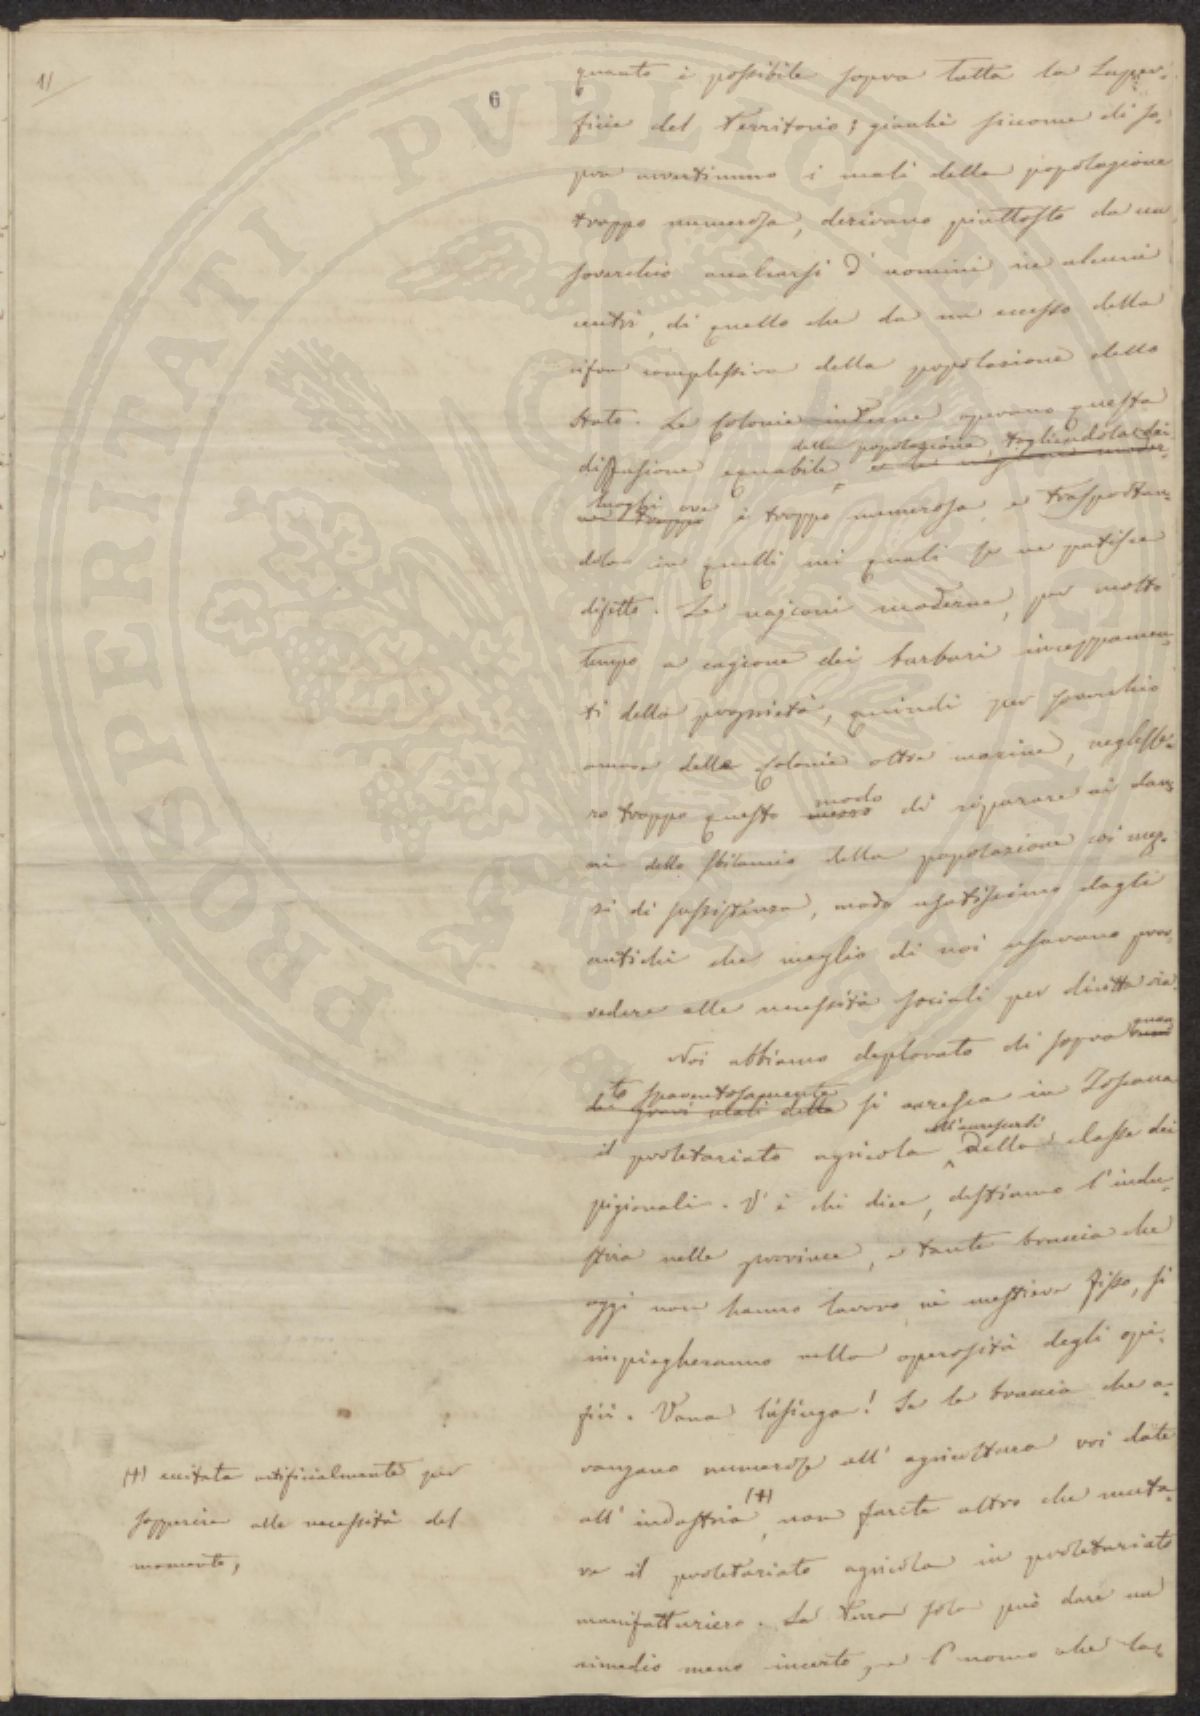 1/
6
quanto è possibile sopra tutta la Super-
ficie del Territorio; giacchè siccome di so-
pra avvertimmo i mali della popolazione
troppo numerosa, derivano piuttosto da un
soverchio ammassarsi d'uomini in alcuni
centri, di quello che da un eccesso della
cifra complessiva della popolazione dello
Stato. Le Colonie interne operano questa
della popolazione, togliendola dai
diffusione equabile
luoghi ove è troppo numerosa, e trasportan-
dola in quelli nei quali se ne patisce
difetto. Le nazioni moderne, per molto
tempo a cagione dei barbari inceppamen-
ti della proprietà, quindi per soverchio
amore delle Colonie oltre marine, neglesse-
ro troppo questo mezzo modo di riparare ai dan-
ni dello sbilancio della popolazione coi mez-
zi di sussistenza, modo usatissimo dagli
antichi che meglio di noi usavano prov-
vedere alle necessità sociali per diritta via.
Noi abbiamo deplorato di sopra quan
to spaventosamente
dei gravi mali della si accresca in Toscana
il proletariato agricola coll'accrescersi della classe dei
pigionali. V'è chi dice, destiamo l'indu-
stria nelle province, e tante braccia che
oggi non hanno lavoro nè mestiere fisso, si
impiegheranno nella operosità degli opi-
fici. Vana lusinga! Se le braccia che a-
vanzano numerose all'agricoltura voi date
all'industria (+), non farete altro che muta-
re il proletariato agricola in proletariato
manifatturiero. La Terra sola può dare un
rimedio meno incerto, e l'uomo che la-
(+) eccitata artificialmente per
sopperire alle necessità del
momento,
PROSPERITATI PUBLICAE